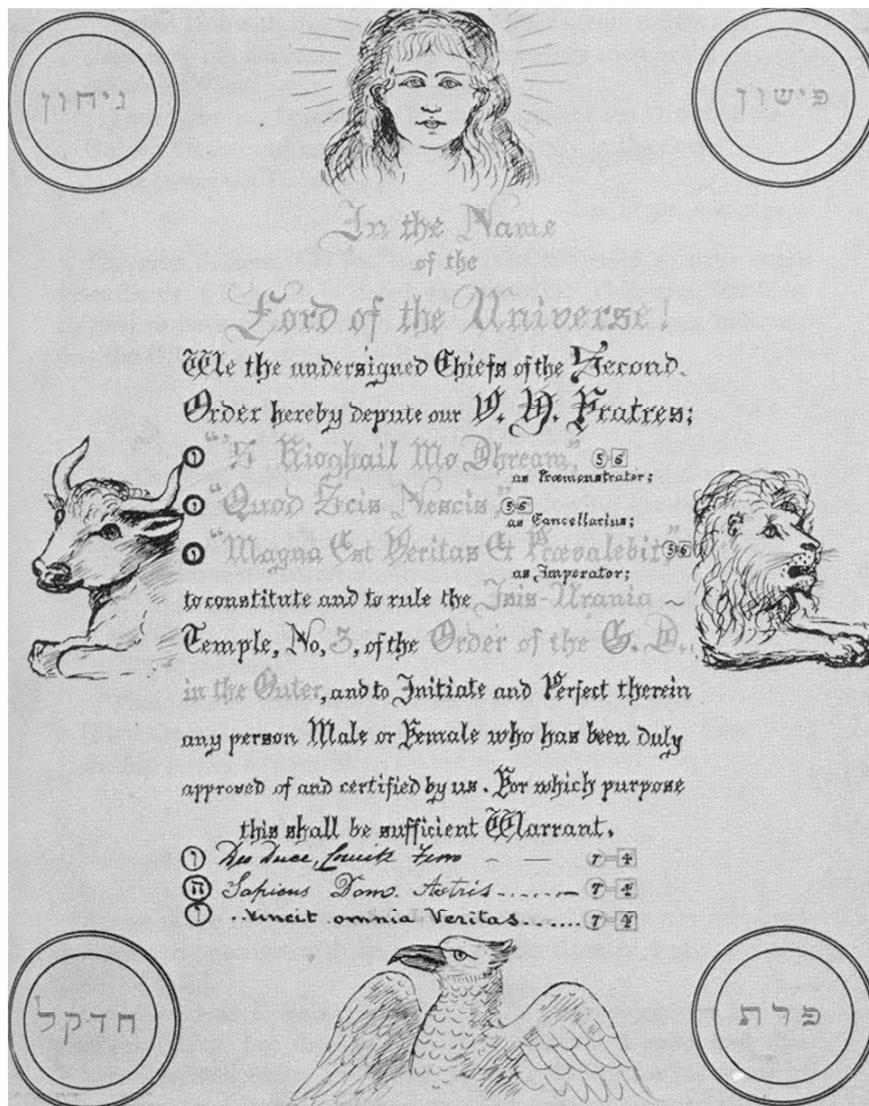 גיחון
פישון
In the Name
of the
Lord of the Universe!
We the undersigned Chiefs of the Second
Order hereby depute our V. H. Fratres;
ו "'S Rioghail Mo Dhream", 5=6
as Præmonstrator;
ו "Quod Scis Nescis," 5=6
as Cancellarius;
ו "Magna Est Veritas Et Prævalebit" 5=6
as Imperator;
to constitute and to rule the Isis-Urania ~
Temple, No, 3, of the Order of the G. D.,
in the Outer, and to Initiate and Perfect therein
any person Male or Female who has been duly
approved of and certified by us. For which purpose
this shall be sufficient Warrant.
Deo Duce, Comite Ferro - — 7=4
ה Sapiens Dom. Astris ....... — 7=4
..Vincit omnia Veritas ...... 7=4
חדקל
פרת